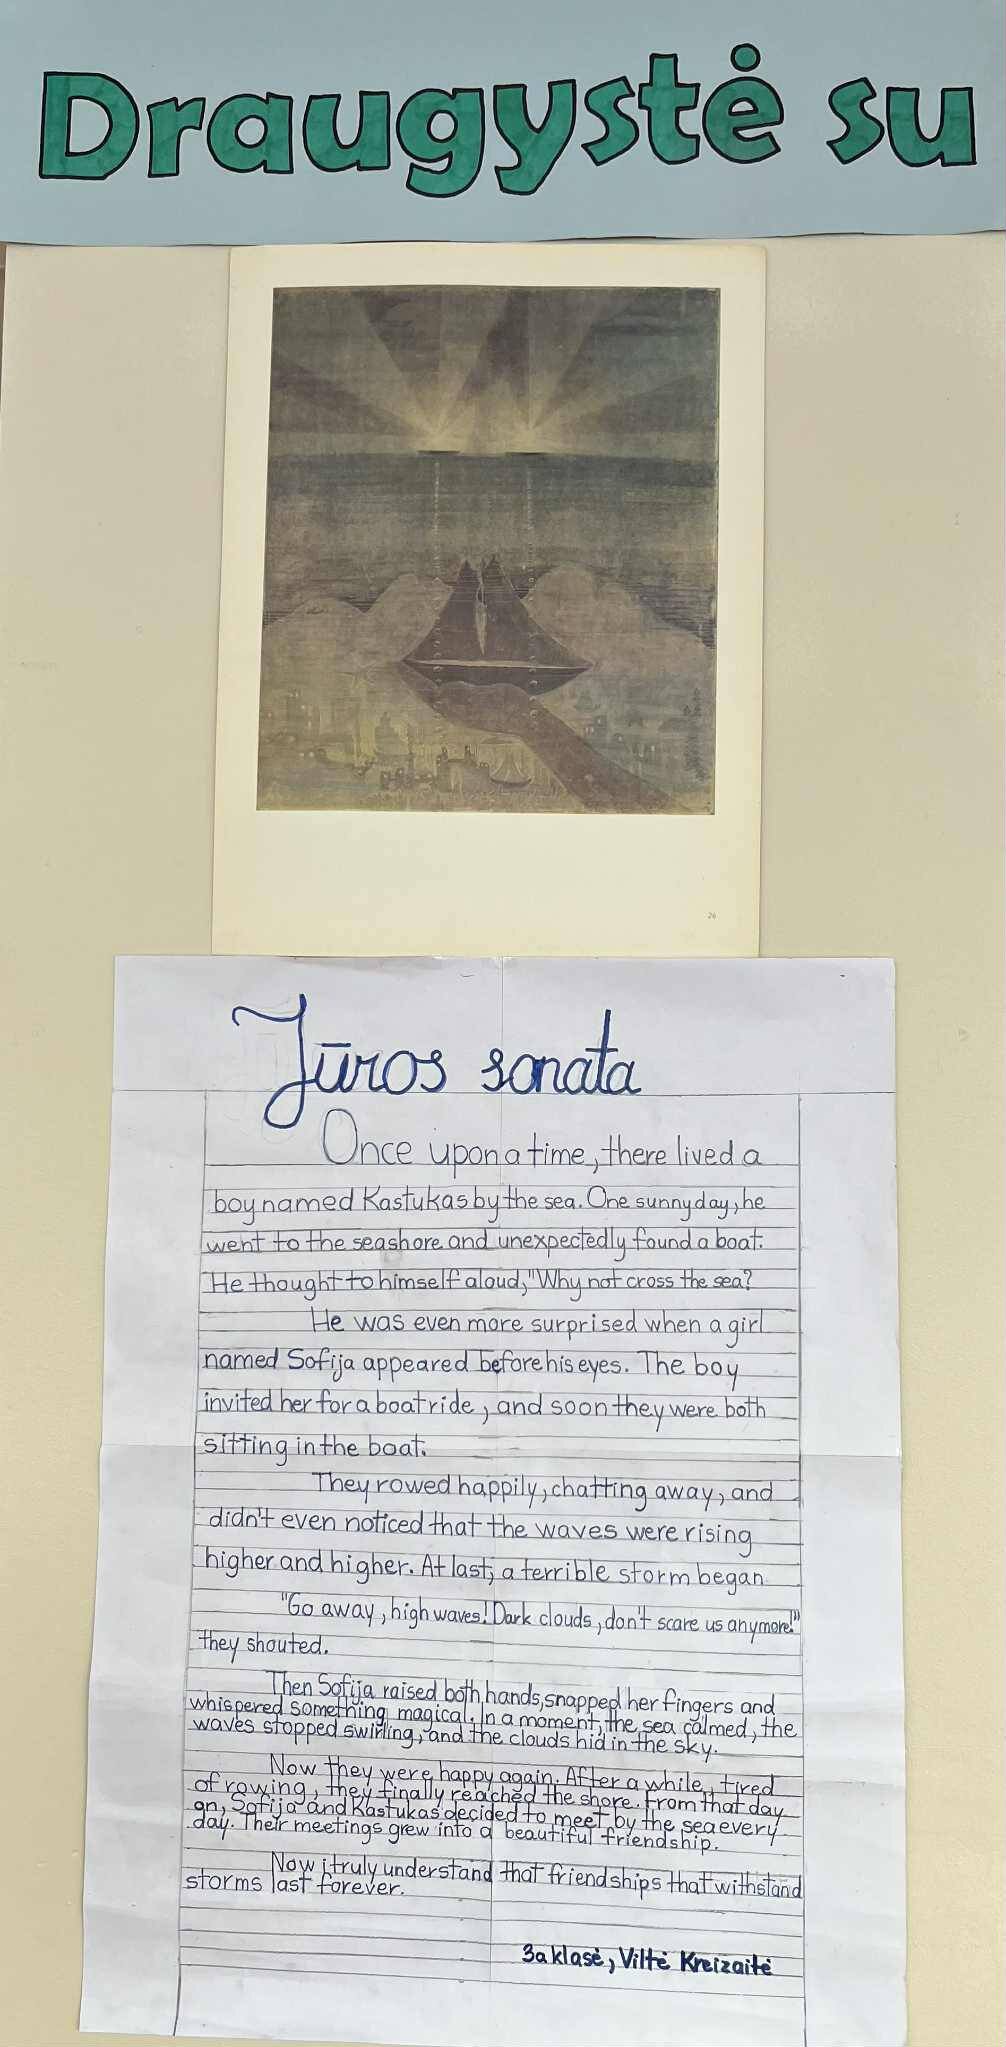 Draugystė su
26
Jūros sonata
Once upon a time, there lived a
boy named Kastukas by the sea. One sunny day, he
went to the seashore and unexpectedly found a boat.
He thought to himself aloud, "Why not cross the sea?
He was even more surprised when a girl
named Sofija appeared before his eyes. The boy
invited her for a boat ride, and soon they were both
sitting in the boat.
They rowed happily, chatting away, and
didn't even noticed that the waves were rising
higher and higher. At last, a terrible storm began
"Go away, high waves! Dark clouds, don't scare us anymore!"
they shouted.
Then Sofija raised both hands, snapped her fingers and
whispered something magical. In a moment, the sea calmed, the
waves stopped swirling, and the clouds hid in the sky.
Now they were happy again. After a while, tired
of rowing, they finally reached the shore. From that day
on, Sofija and Kastukas decided to meet by the sea every
day. Their meetings grew into a beautiful friendship.
Now i truly understand that friendships that withstand
storms last forever.
3a klasė, Viltė Kreizaitė